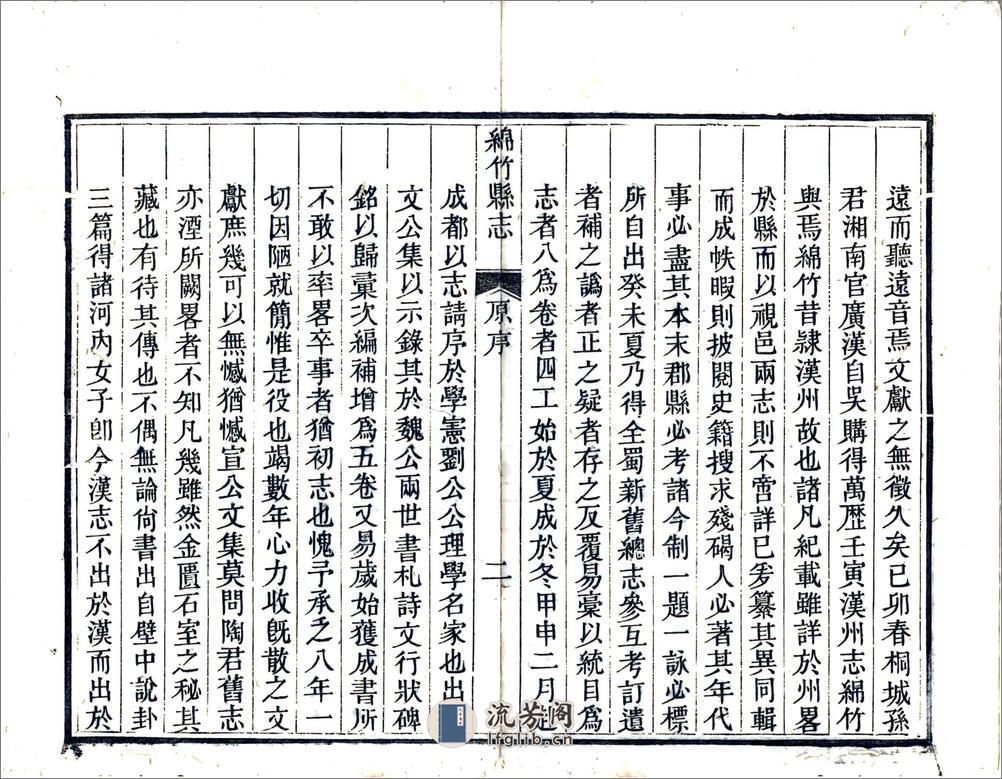 遠而聽遠音焉文獻之無徵久矣已卯春桐城孫
君湘南官廣漢自吳購得萬歷壬寅漢州志綿竹
與焉綿竹昔隸漢州故也諸凡紀載雖詳於州畧
於縣而以視邑兩志則不啻詳已爰纂其異同輯
而成帙暇則披閱史籍搜求殘碣人必著其年代
事必盡其本末郡縣必考諸今制一題一詠必標
所自出癸未夏乃得全蜀新舊總志參互考訂遺
者補之譌者正之疑者存之反覆易稾以統目爲
志者八爲卷者四工始於夏成於冬甲申二月
綿竹縣志
原序
二
成都以志請序於學憲劉公公理學名家也出
文公集以示錄其於魏公兩世書札詩文行狀碑
銘以歸彙次編補增爲五卷又易歲始獲成書所
不敢以率畧卒事者猶初志也愧予承乏八年一
切因陋就簡惟是役也竭數年心力收旣散之文
獻庶幾可以無憾猶憾宣公文集莫問陶君舊志
亦湮所闕畧者不知凡幾雖然金匱石室之秘其
藏也有待其傳也不偶無論尙書出自壁中說卦
三篇得諸河內女子卽今漢志不出於漢而出於
流芳阁
lfglib.cn